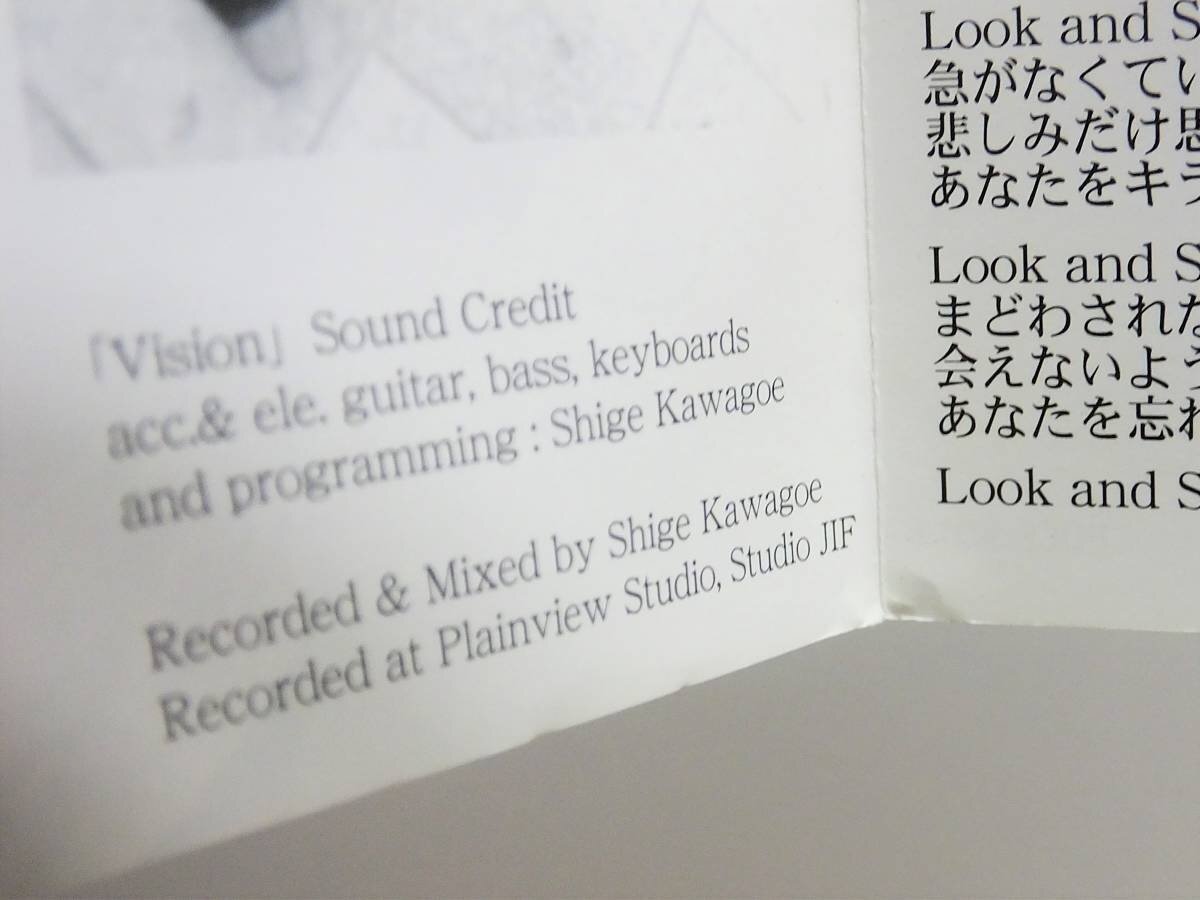 「Vision」 Sound Credit
acc.& ele. guitar, bass, keyboards
and programming : Shige Kawagoe
Recorded & Mixed by Shige Kawagoe
Recorded at Plainview Studio, Studio JIF
Look and S
急がなくてい
悲しみだけ思
あなたをキラ
Look and S
まどわされな
会えないよう
あなたを忘れ
Look and S